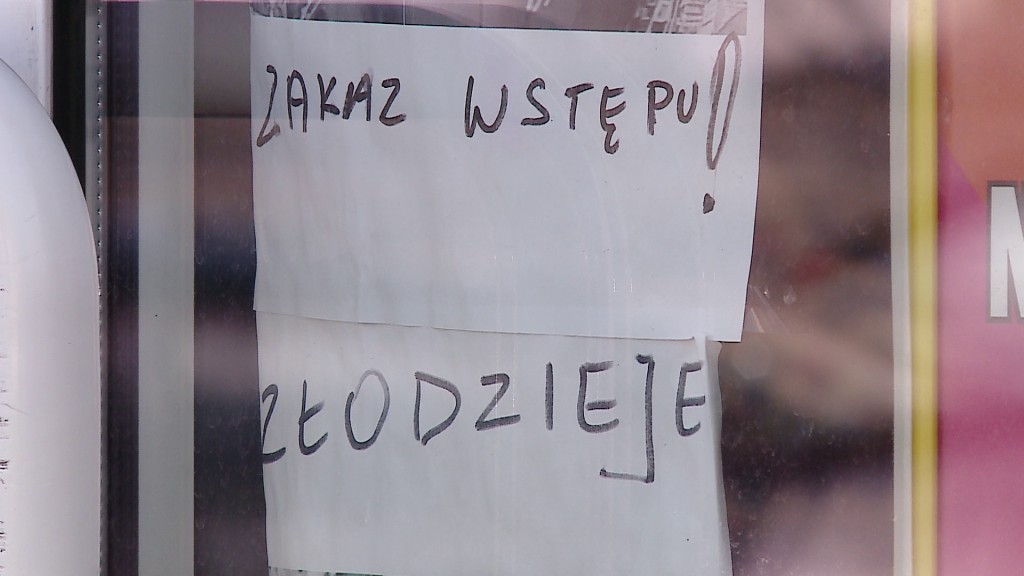 ZAKAZ WSTĘPU!
ZŁODZIEJE